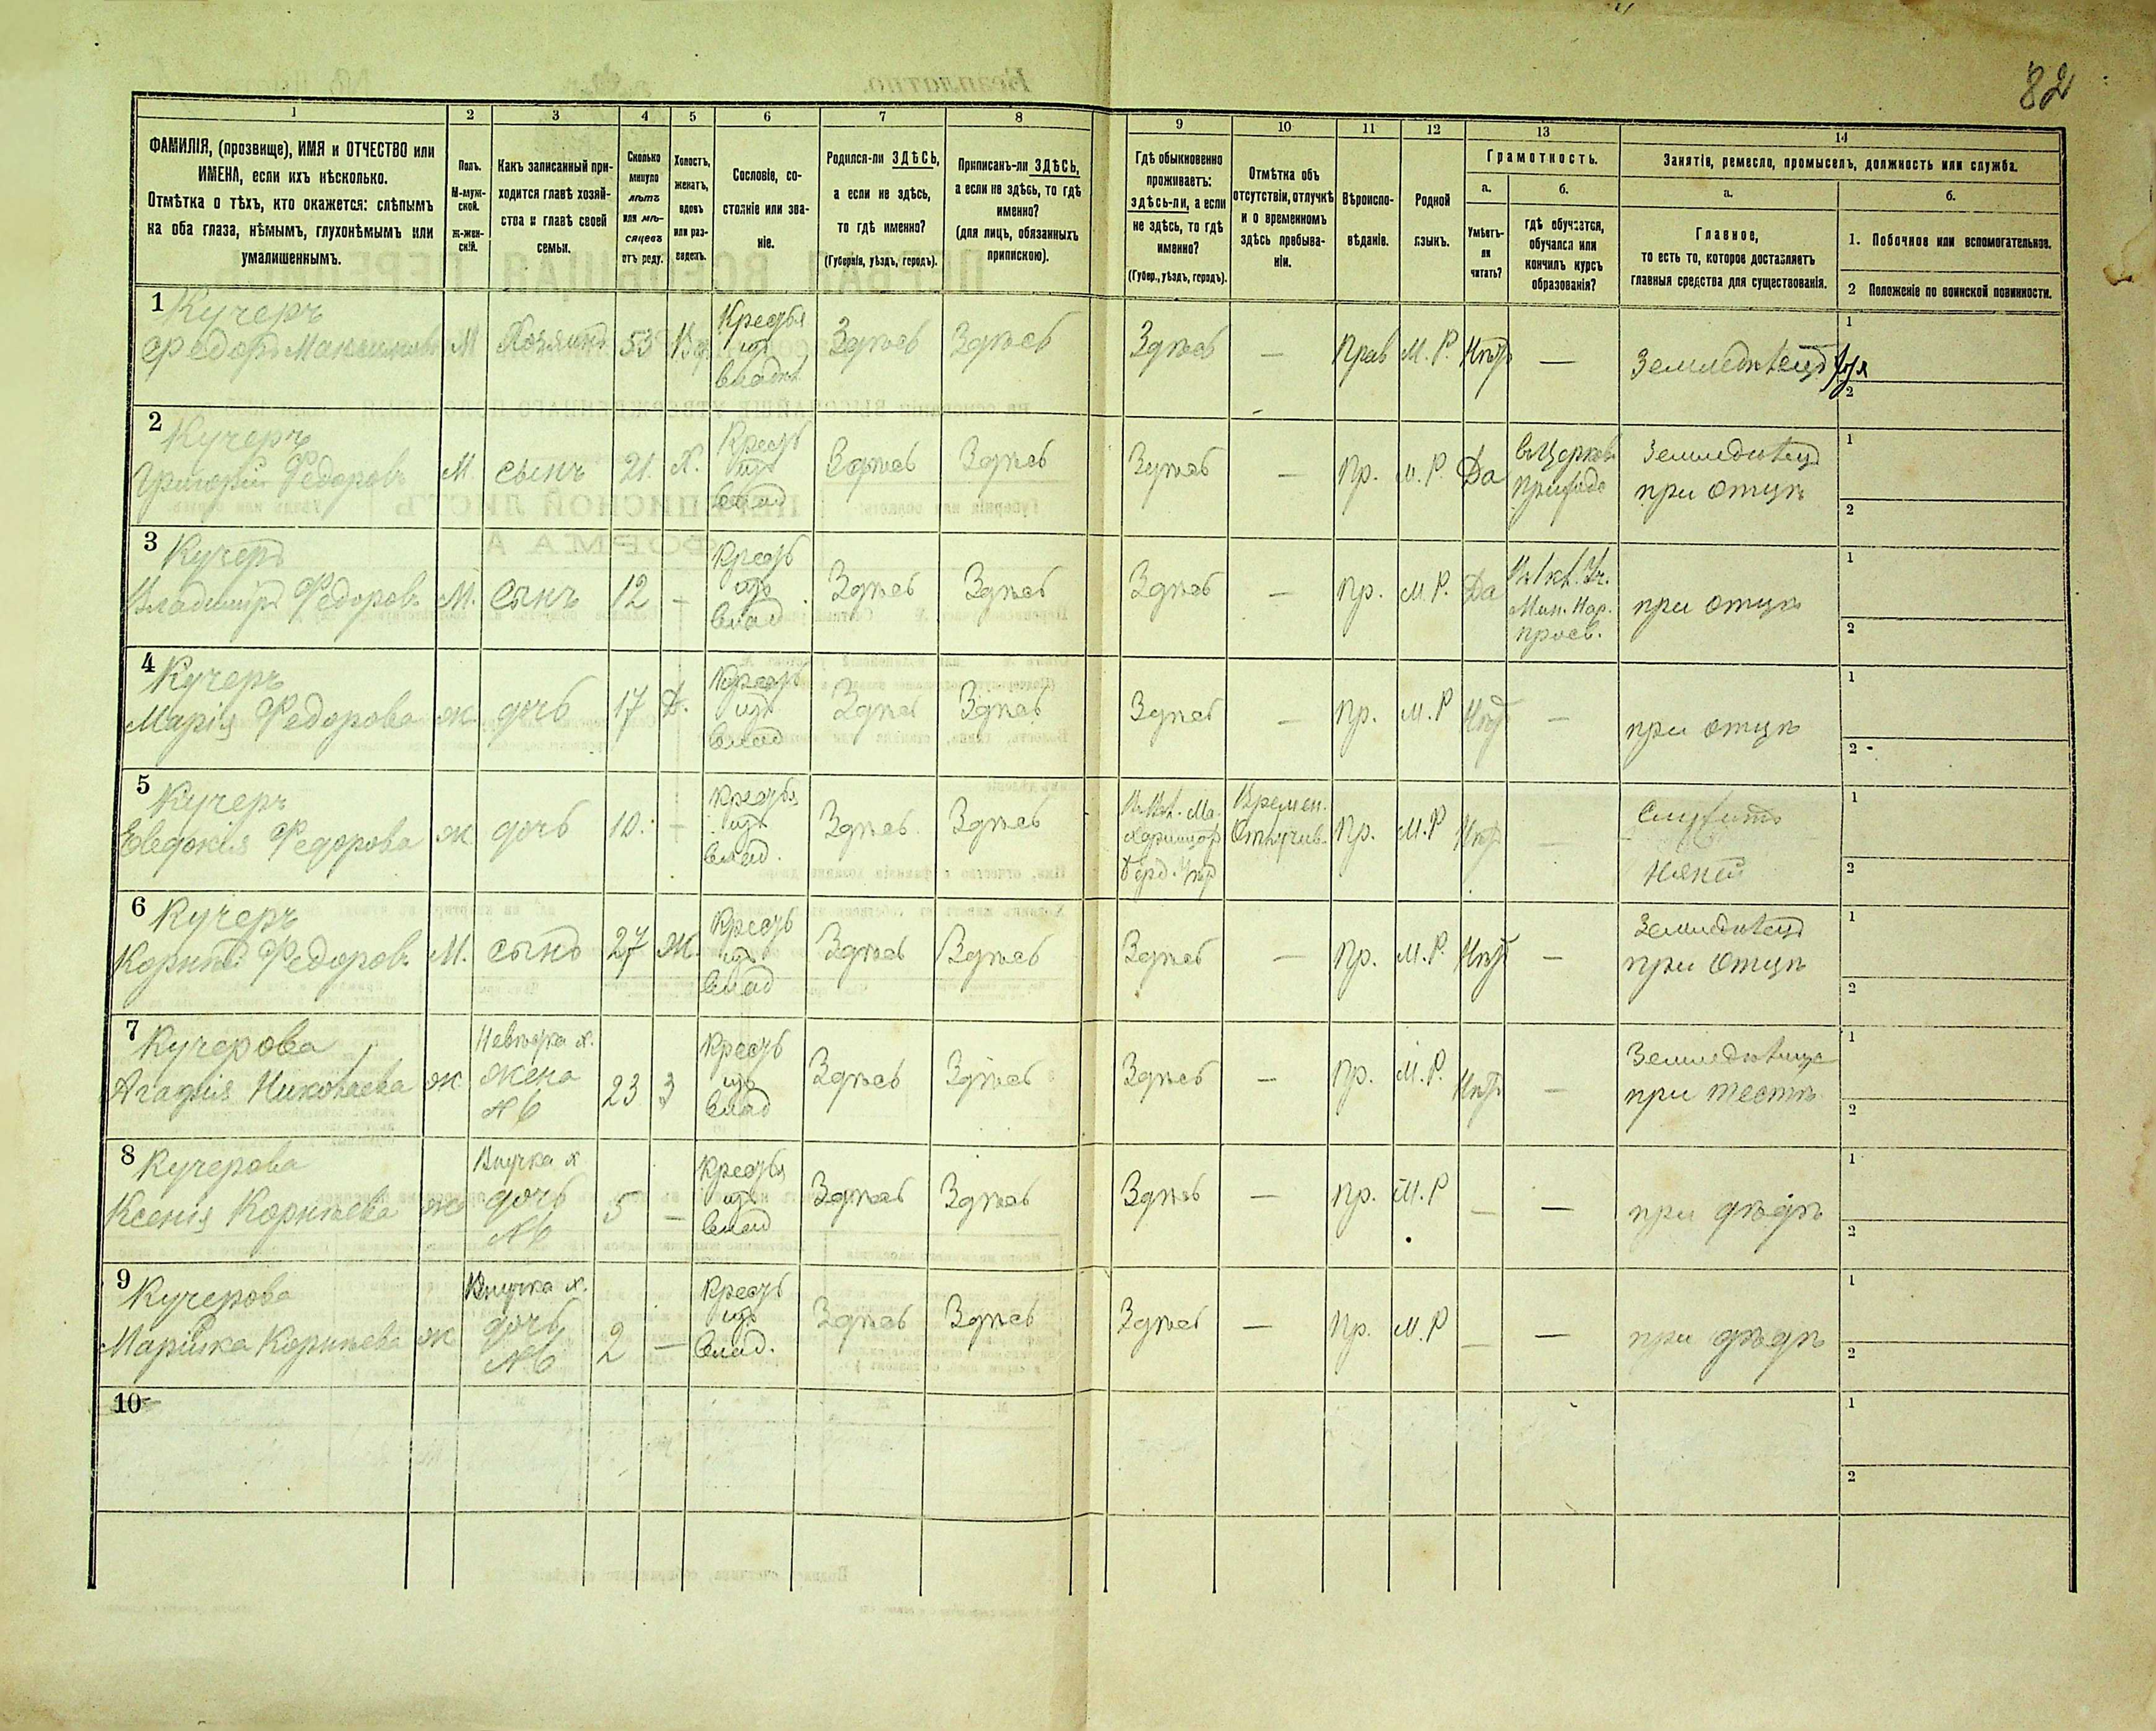 82
1 2 3 4 5 6 7 8 9 10 11 12 13 14
ФАМИЛІЯ, (прозвище), ИМЯ и ОТЧЕСТВО или
ИМЕНА, если ихъ нѣсколько.
Отмѣтка о тѣхъ, кто окажется: слѣпымъ
на оба глаза, нѣмымъ, глухонѣмымъ или
умалишеннымъ.
Полъ.
М-муж-
ской.
Ж-жен-
скій.
Какъ записанный при-
ходится главѣ хозяй-
ства и главѣ своей
семьи.
Сколько
минуло
лѣтъ
или мѣ-
сяцевъ
отъ роду.
Холостъ,
женатъ,
вдовъ
или раз-
веденъ.
Сословіе, со-
стояніе или зва-
ніе.
Родился-ли ЗДѢСЬ,
а если не здѣсь,
то гдѣ именно?
(Губернія, уѣздъ, городъ).
Приписанъ-ли ЗДѢСЬ,
а если не здѣсь, то гдѣ
именно?
(для лицъ, обязанныхъ
припискою).
Гдѣ обыкновенно
проживаетъ:
здѣсь-ли, а если
не здѣсь, то гдѣ
именно?
(Губер., уѣздъ, городъ).
Отмѣтка объ
отсутствіи, отлучкѣ
и о временномъ
здѣсь пребыва-
ніи.
Вѣроиспо-
вѣданіе.
Родной
языкъ.
Грамотность.
а.
Умѣетъ-
ли
читать?
б.
гдѣ обучается,
обучался или
кончилъ курсъ
образованія?
Занятіе, ремесло, промыселъ, должность или служба.
а.
Главное,
то есть то, которое доставляетъ
главныя средства для существованія.
б.
1. Побочное или вспомогательное.
2 Положеніе по воинской повинности.
1
Кучеръ
Федоръ Максимовъ
М Хозяинъ 53 Вд.
Крестья
изъ
владѣл
Здѣсь Здѣсь Здѣсь — Прав М. Р. Нѣтъ — Земледѣлецъ
1
2
2
Кучеръ
Григорій Федоровъ
М. сынъ 21. Х.
Кресть
изъ
влад
Здѣсь Здѣсь Здѣсь — Пр. М. Р. Да
въ Церков
приходс
Земледѣлецъ
при отцѣ
1
2
3
Кучеръ
Владимиръ Федоровъ
М. Сынъ 12 —
Кресть
изъ
влад
Здѣсь Здѣсь Здѣсь — Пр. М. Р. Да
В 1 кл. Уч.
Мин. Нар.
просв.
при отцѣ
1
2
4
Кучеръ
Марія Федорова
ж. дочь 17 Д.
Кресть
изъ
влад
Здѣсь Здѣсь Здѣсь — Пр. М. Р Нѣтъ — при отцѣ
1
2
5
Кучеръ
Евдокія Федорова
ж дочь 10. —
Крестья
изъ
влад.
Здѣсь Здѣсь
Времен.
Отлучив.
Пр. М. Р Нѣтъ —
Служитъ
Няней
1
2
6
Кучеръ
Корнѣй Федоровъ
М. сынъ 27 Ж.
Кресть
изъ
влад
Здѣсь Здѣсь Здѣсь — Пр. М. Р. Нѣтъ —
Земледѣлецъ
при отцѣ
1
2
7
Кучерова
Агафія Николаева
ж
Невѣстка х.
жена
№ 6
23 З
Кресть
изъ
влад
Здѣсь Здѣсь Здѣсь — Пр. М. Р. Нѣтъ —
при тестѣ
1
2
8
Кучерова
Ксенія Корнѣева
ж
Внучка х
дочь
№ 6
5 —
Крестья
изъ
влад
Здѣсь Здѣсь Здѣсь — Пр. М. Р — — при дѣдѣ
1
2
9
Кучерова
Марійка Корнѣева
ж
Внучка х.
дочь
№ 6
2 —
Кресть
изъ
влад.
Здѣсь Здѣсь Здѣсь — Пр. М. Р — — при дѣдѣ
1
2
10
1
2